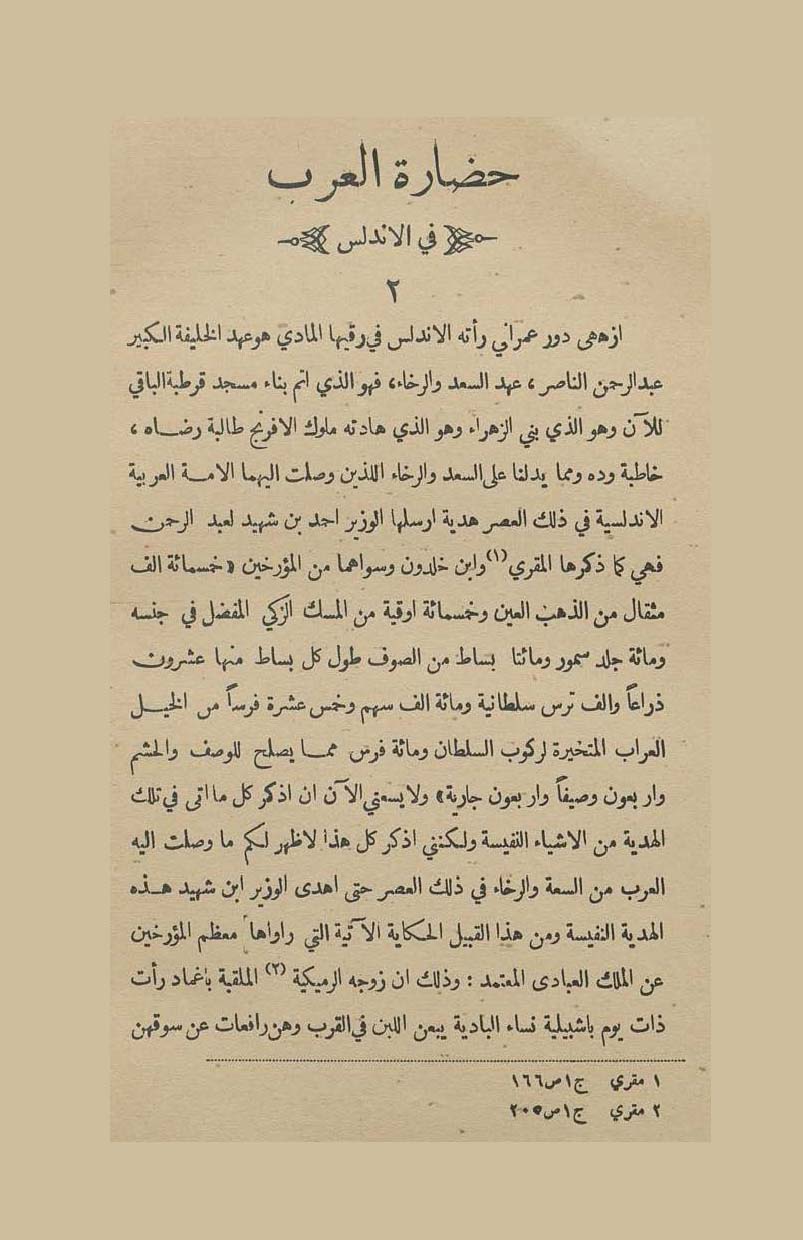 حضارة العرب
في الاندلس
٢
ازهى دور عمراني رأته الاندلس في رقيها المادي هو عهد الخليفة الكبير
عبدالرحمن الناصر ، عهد السعد والرخاء، فهو الذي اتم بناء مسجد قرطبة الباقي
للآن وهو الذي بني الزهراء وهو الذي هادته ملوك الافرنج طالبة رضاه ،
خاطبة وده ومما يدلنا على السعد والرخاء اللذين وصلت اليهما الامة العربية
الاندلسية في ذلك العصر هدية ارسلها الوزير احمد بن شهيد لعبد الرحمن
فهي كما ذكرها المقري (١) وابن خلدون وسواهما من المؤرخين «خمسمائة الف
مثقال من الذهب العين وخمسمائة اوقية من المسك الزكي المفضل في جنسه
ومائة جلد سمور ومائتا بساط من الصوف طول كل بساط منها عشرون
ذراعاً والف ترس سلطانية ومائة الف سهم وخمس عشرة فرساً من الخيل
العراب المتخيرة لركوب السلطان ومائة فرس مما يصلح للوصف والحشم
واربعون وصيفاً واربعون جارية» ولا يسعني الآن ان اذكر كل ما اتى في تلك
الهدية من الاشياء النفيسة ولكنني اذكر كل هذا لاظهر لكم ما وصلت اليه
العرب من السعة والرخاء في ذلك العصر حتى اهدى الوزير ابن شهيد هذه
الهدية النفيسة ومن هذا القبيل الحكاية الآتية التي راواها معظم المؤرخين
عن الملك العبادى المعتمد : وذلك ان زوجه الرميكية (٢) الملقبة باغماد رأت
ذات يوم باشبيلية نساء البادية يبعن اللبن في القرب وهن رافعات عن سوقهن
١ مقري ج١ص١٦٦
٢ مقري ج١ص٢٠٥